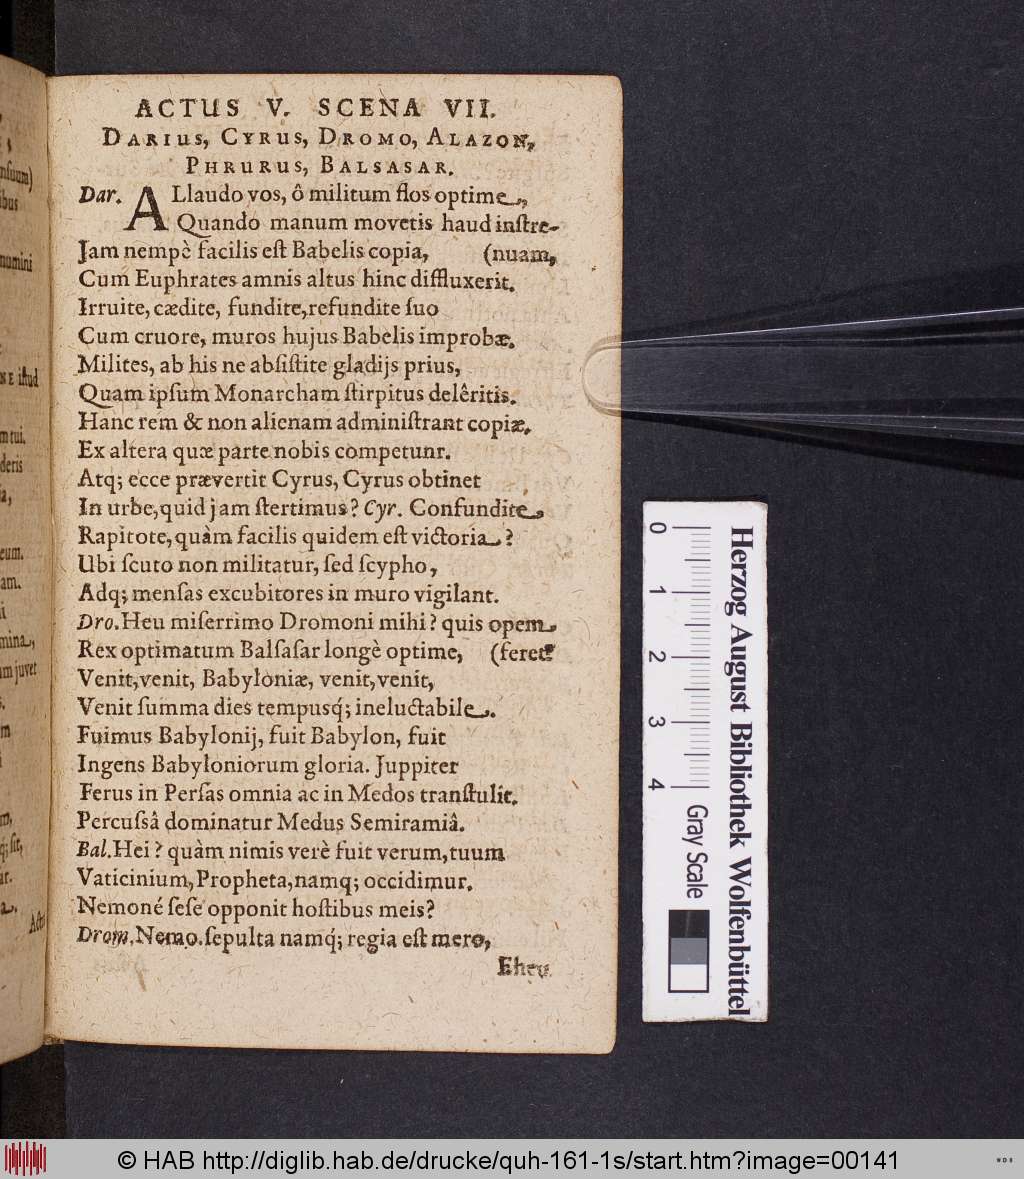 nsuum)
ibus
numini
NE istud
m tui.
deris
ia,
eum.
am.
mina,
im juvet
Actus
ACTUS V. SCENA VII.
DARIUS, CYRUS, DROMO, ALAZON,
PHRURUS, BALSASAR.
Dar. ALlaudo vos, ô militum flos optime,
Quando manum movetis haud inſtre-
Jam nempè facilis eſt Babelis copia, (nuam,
Cum Euphrates amnis altus hinc diffluxerit.
Irruite, cædite, fundite, refundite ſuo
Cum cruore, muros hujus Babelis improbæ.
Milites, ab his ne abſiſtite gladijs prius,
Quam ipſum Monarcham ſtirpitus delêritis.
Hanc rem & non alienam adminiſtrant copiæ.
Ex altera quæ parte nobis competunr.
Atq; ecce prævertit Cyrus, Cyrus obtinet
In urbe, quid jam ſtertimus? Cyr. Confundite,
Rapitote, quàm facilis quidem eſt victoria?
Ubi ſcuto non militatur, ſed ſcypho,
Adq; menſas excubitores in muro vigilant.
Dro. Heu miſerrimo Dromoni mihi? quis opem
Rex optimatum Balſaſar longè optime, (feret?
Venit, venit, Babyloniæ, venit, venit,
Venit ſumma dies tempusq́; ineluctabile.
Fuimus Babylonij, fuit Babylon, fuit
Ingens Babyloniorum gloria. Juppiter
Ferus in Perſas omnia ac in Medos tranſtulit.
Percuſsâ dominatur Medus Semiramiâ.
Bal. Hei? quàm nimis verè fuit verum, tuum
Vaticinium, Propheta, namq; occidimur.
Nemoné ſeſe opponit hoſtibus meis?
Drom. Nemo. ſepulta namq́; regia eſt mero,
Eheu
0 1 2 3 4
Herzog August Bibliothek Wolfenbüttel
Gray Scale
© HAB http://diglib.hab.de/drucke/quh-161-1s/start.htm?image=00141